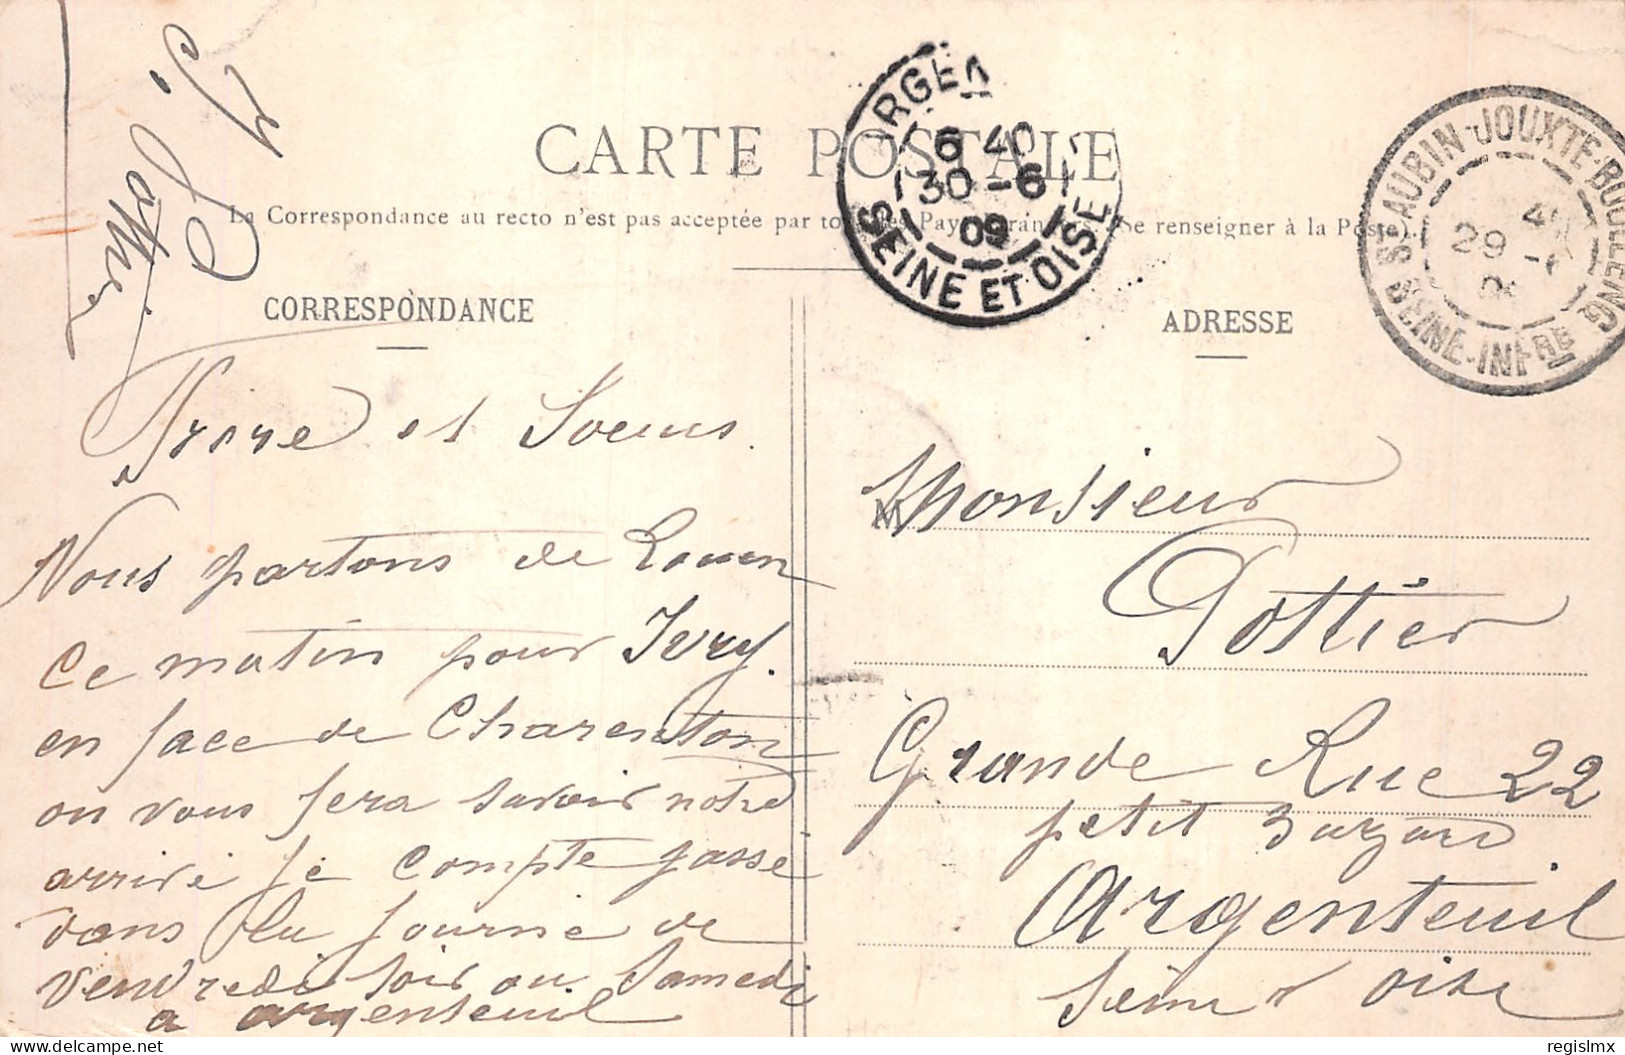 CARTE POSTALE
La Correspondance au recto n'est pas acceptée par to Pay Se renseigner à la Poste).
CORRESPONDANCE
Frère et Soeurs.
Nous partons de Rouen
ce matin pour Ivry.
en face de Charenton
on vous fera savoir notre
arrivé je compte passé
dans la journé de
vendredi soir ou Samedi
a argenteuil
Pottier
ADRESSE
M Monsieur
Pottier
Grande Rue 22
petit Bazard
Argenteuil
Seine oise
ARGEN
6 40
30 -6
09
SEINE ET OISE
ST AUBIN-JOUXTE-BOULLENG
29 -6
SEINE-INFRE
regislmx